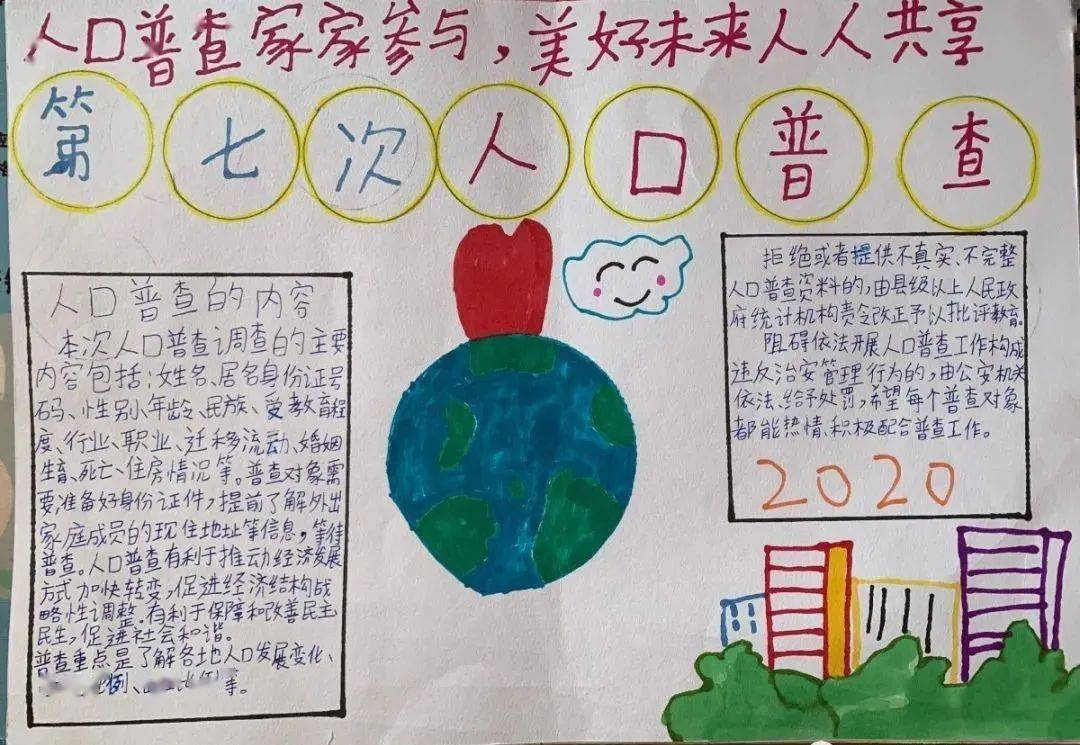 人口普查家家参与，美好未来人人共享
第七次人口普查
人口普查的内容
本次人口普查调查的主要
内容包括：姓名、居名身份证号
码、性别小年龄、民族、受教育程
度、行业、职业、迁移流动、婚姻
生育、死亡、住房情况等。普查对象需
要准备好身份证件，提前了解外出
家庭成员的现住地址等信息，等待
普查。人口普查有利于推动经济发展
方式加快转变，促进经济结构战
略性调整。有利于保障和改善民主
民生，促进社会和谐。
普查重点是了解各地人口发展变化、
例、等。
拒绝或者提供不真实、不完整
人口普查资料的，由县级以上人民政
府统计机构责令改正予以批评教育。
阻碍依法开展人口普查工作构成
违反治安管理行为的，由公安机关
依法、给予处罚，希望每个普查对象
都能热情、积极配合普查工作。
2020